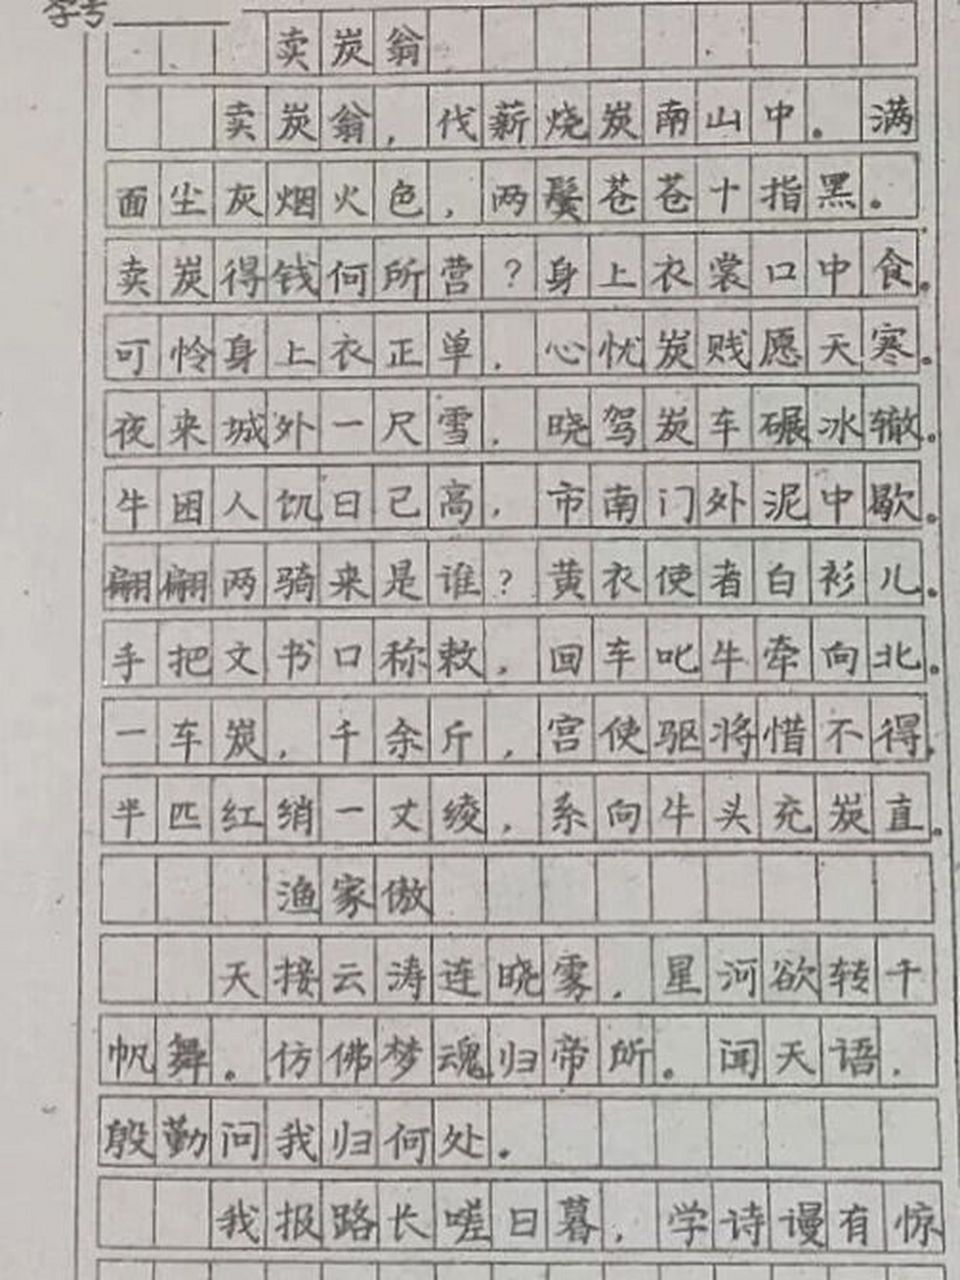 学号
卖炭翁
卖炭翁，伐薪烧炭南山中。满
面尘灰烟火色，两鬓苍苍十指黑。
卖炭得钱何所营？身上衣裳口中食。
可怜身上衣正单，心忧炭贱愿天寒。
夜来城外一尺雪，晓驾炭车碾冰辙。
牛困人饥日已高，市南门外泥中歇。
翩翩两骑来是谁？黄衣使者白衫儿。
手把文书口称敕，回车叱牛牵向北。
一车炭，千余斤，宫使驱将惜不得。
半匹红绡一丈绫，系向牛头充炭直。
渔家傲
天接云涛连晓雾，星河欲转千
帆舞。仿佛梦魂归帝所。闻天语，
殷勤问我归何处。
我报路长嗟日暮，学诗谩有惊